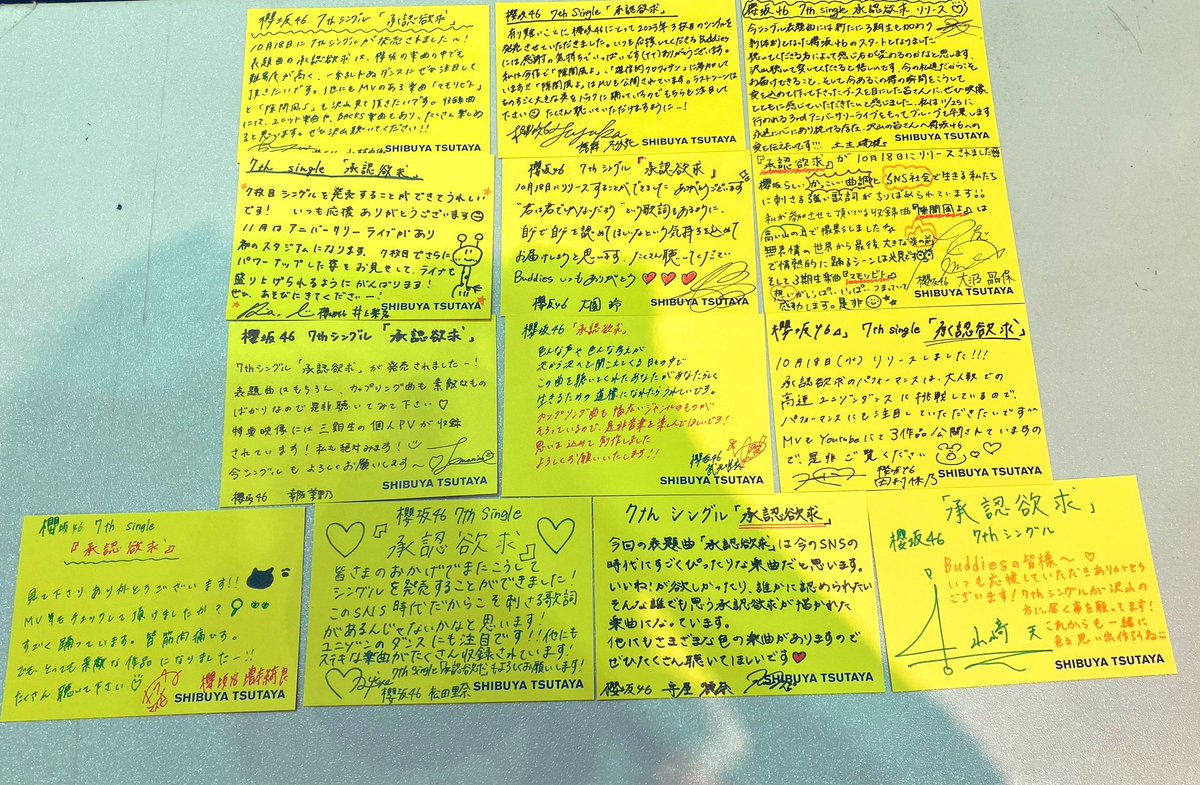 櫻坂46 7thシングル「承認欲求」
10月18日に7thシングルが発売されました〜!
表題曲の承認欲求は、櫻坂の楽曲の中でも
難易度が高く、一糸乱れぬダンスにぜひ注目して
頂きたいです。他にもMVのある楽曲「マモリビト」
と「隙間風よ」も沢山見て頂きたいです。
には、ユニット曲や、BACKS楽曲もあり、たくさん楽しめ
ると思うます。ぜひ沢山聴いてください!!
SHIBUYA TSUTAYA
櫻坂46 7th Single「承認欲求」
有り難いことに櫻坂46にとって2023年3枚目のシングルを
発売させていただきました。いつも応援してくださるBuddies
には感謝の気持ちでいっぱいです
私は今作で「隙間風よ」、
いますが「隙間風よ」はMVも公開されています。ラストシーンは
ものすごく大きな炎をバックに踊っているのでそちらも注目して
下さい たくさん聴いていただけますように〜!
SHIBUYA TSUTAYA
櫻坂46 7th single 承認欲求 リリース♡
今シングル表題曲には新たに3期生も加わり
新体制となった櫻坂46のスタートとなりました
聴いてくださる方によって感じ方が変わるのかなと思います。
沢山聴いて愛してくださると嬉しいです。今の私達だからこそ
お届けできること、そして今あるこの時の瞬間をこうして
とともに感じていただきたいなと感じました。私は11/25に
行われる3rdアニバーサリーライブをもってグループを卒業します
土生瑞穂
SHIBUYA TSUTAYA
7th single「承認欲求」
7枚目シングルを発売することができてうれしい
です! いつも応援ありがとうございます
11月はアニバーサリーライブがあり
初のスタジアムになります。7枚目でさらに
パワーアップした姿をお見せして、ライブも
盛り上げられるようにがんばります!
ぜひ、あそびにきてくださいー!
櫻坂46 井上梨名
SHIBUYA TSUTAYA
櫻坂46 7thシングル「承認欲求」
10月18日にリリースすることができました ありがとうございます
"君は君でいいんだよ"という歌詞もあるように、
自分で自分を認めてほしいなという気持ちを込めて
お届けしようと思います。たくさん聴いてください
Buddiesいつもありがとう♥♥♥
櫻坂46 大園 玲
SHIBUYA TSUTAYA
『承認欲求』が10月18日にリリースされました
櫻坂らしいかっこいい曲調とSNS社会で生きる私たち
に刺さる強い歌詞がちりばめられています。
私が参加させて頂いている収録曲『隙間風よ』は
高い山の上で撮影をしました
無表情の世界から最後大きな炎の前
で情熱的に踊るシーンは必見です
そして3期生楽曲『マモリビト』
想いがいっぱい、いっぱいつまっていて
感動します。是非
櫻坂46 大沼晶保
SHIBUYA TSUTAYA
櫻坂46 7thシングル「承認欲求」
7thシングル「承認欲求」が発売されましたー!
表題曲はもちろん、カップリング曲も素敵なもの
ばかりなので是非聴いてみて下さい♡
特典映像には三期生の個人PVが収録
されています!私も絶対みます!
今シングルもよろしくお願いします〜♡
櫻坂46 幸阪茉里乃
SHIBUYA TSUTAYA
櫻坂46「承認欲求」
色んな声や色んな考えが
次から次へと聞こえてくる日々の中で
この曲を聴いてくれたあなたがあなたらしく
生きるための道標になれたらうれしいです。
カップリング曲も幅広いジャンルのものが
そろっているので、是非音楽を楽しんでほしいです!
思いを込めて制作しました
よろしくお願いいたします!!
櫻坂46
SHIBUYA TSUTAYA
櫻坂46 7th single「承認欲求」
10月18日(水)リリースしました!!!
承認欲求のパフォーマンスは、大人数での
高速ユニゾンダンスに挑戦しているので、
パフォーマンスにも注目していただきたいです^^
MVもYoutubeにて3作品公開されていますの
で是非ご覧ください
櫻坂46
田村保乃
SHIBUYA TSUTAYA
櫻坂46 7th Single
『承認欲求』
見て下さりありがとうございます!!
MV等もチェックして頂けましたか?
すごく踊っています。背筋肉痛です。
でも、とっても素敵な作品になりましたー!!
たくさん聴いて下さい
櫻坂46
SHIBUYA TSUTAYA
櫻坂46 7th Single
『承認欲求』
皆さまのおかげでまたこうして
シングルを発売することができました!
このSNS時代だからこそ刺さる歌詞
があるんじゃないかなと思います!
ユニゾンのダンスにも注目です!!他にも
ステキな楽曲がたくさん収録されています!
7th Single承認欲求もよろしくお願います!
櫻坂46 松田里奈
SHIBUYA TSUTAYA
7thシングル「承認欲求」
今回の表題曲「承認欲求」は今のSNSの
時代にすごくぴったりな楽曲だと思います。
いいね!が欲しかったり、誰かに認められたい
そんな誰でも思う承認欲求が描かれた
楽曲になっています。
他にもさまざまな色の楽曲がありますので
ぜひたくさん聴いてほしいです♥
櫻坂46 守屋麗奈
SHIBUYA TSUTAYA
「承認欲求」
櫻坂46 7thシングル
Buddiesの皆様へ♡
いつも応援していただきありがとう
ございます!7thシングルが沢山の
方に届く事を願ってます!
これからも一緒に
色々思い出作ろうねっ
山﨑 天
SHIBUYA TSUTAYA